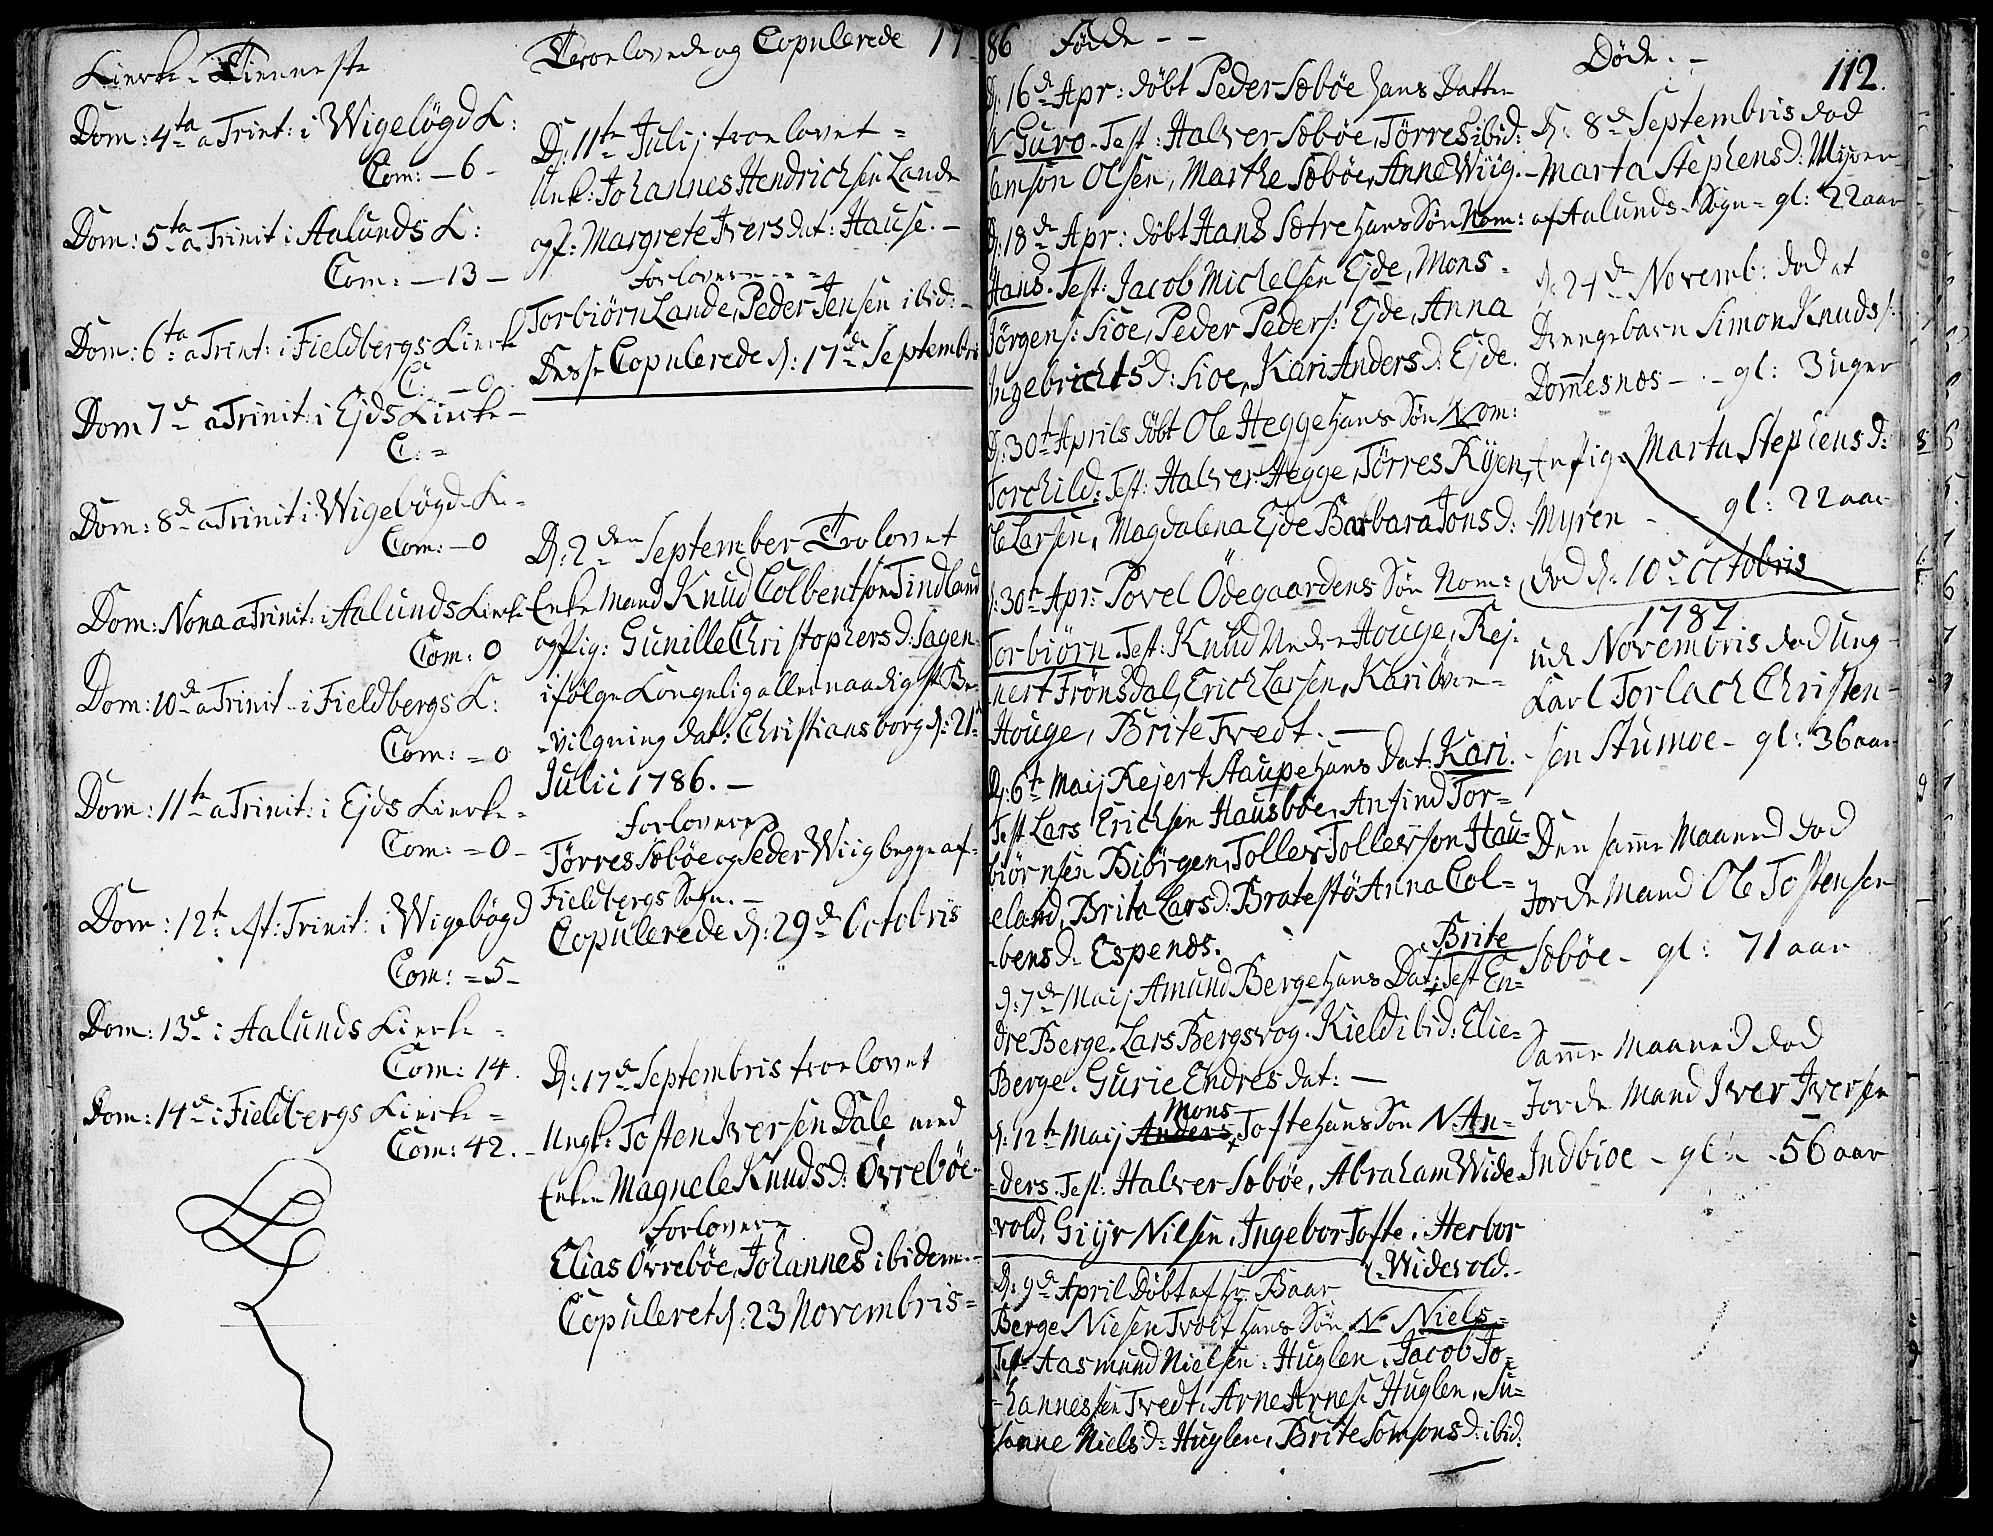 Kierke-Tienneste
Dom: 4ta a Trint: i Wigebögd K:
Com: - 6 -
Dom: 5ta a Trinit: i Aalunds K:
Com: - 13 -
Dom: 6ta a Trint: i Fieldbergs Kierk
C: - 0
Dom 7de a Trinit: i Ejds Kierke -
C: =
Dom: 8de a Trinit i Wigebögd K: -
Com: - 0
Dom: Nona a Trinit: i Aalunds Kierke
Com: 0
Dom: 10de a Trinit - i Fieldbergs K:
Com: = 0
Dom: 11te a Trinit: i Ejds Kierke -
Com: = 0 -
Dom: 12te Trinit: i Wigebögd
Com: = 5 -
Dom: 13de i Aalunds Kierke -
Com: 14.
Dom: 14de i Fieldbergs Kierke =
Com: 42. -
Troelovede og Copulerede 17
D: 11te Julij troelovet =
Unk: Johannes Hendrichsen Lande
og P: Margrete Ivers dat: Hause. -
Forlovere - - =
Torbiörn Lande, Peder Jensen ibid: -
Disse Copulerede d: 17de Septembris
D: 2den September Trolovet
Enke Mand Knud Colbentsøn Tindland
og Pig: Gunille Christophersd: Sagen
ifølge Kongelig allernaadigst Be-
-vilgning dat: Christiansborg d: 21
Julii 1786. -
Forlovere
Tørres Sæbøe og Peder Wiig begge af
Fieldbergs Sogn. -
Copulerede d: 29de Octobris
D: 17de Septembris troelovet
Ungk: Tosten Iversen Dale med
Enken Magnele Knudsd: Øvrebøe
Forlovere
Elias Øvrebøe, Johannes ibidem. -
Copuleret d: 23 Novembris =
86 Fødde - -
D: 16de Apr: døbt Peder Sæbøe hans Datter
N Guro. Test: Halver Sæbøe, Tørres ibid:
Samson Olsen, Marthe Sæbøe, Anne Wiig. -
D: 18de Apr: døbt Hans Sætre hans Søn Nom:
Hans. Test: Jacob Michelsen Ejde, Mons
Jörgens: Sioe, Peder Peders: Ejde, Anna
Ingebrichtsd: Sioe, Kari Anders d: Ejde.
D: 30te Aprils døbt Ole Hegge hans Søn Nom:
Torchild: Test: Halver Hegge, Tørres Ryen,
Ole Larsen, Magdalena Ejde Barbara Jons d:
d: 30te Apr: Povel Ödegaardens Søn Nom:
Torbiörn. Test: Knud Nedre Houge, Rej-
nert Frönsdal, Erich Larsen, Kari Över-
Houge, Brite Tvedt. -
D: 6te Maij Rejert Staupe hans Dat: Kari. -
Test Lars Erichsen Hausbøe, Anfind Tor=
biørnsen Biörgen, Tollev Tollevsen Hau=
eland, Brita Lars d: Bratestö Anna Col=
-bens d: Espenæs.
Brite
D: 7de Maij Amund Berge hans Dat: Test En=
dre Berge. Lars Bergsvog. Kield ibid: Elie=
Berge. Gurie Endres dat: -
Mons
d: 12te Maij Anders Tofte hans Søn N: An=
=ders. Test: Halver Sæbøe, Abraham Wide
vold, Giyr Nilsen, Ingebor Tofte, Herbor
Widevold. -
D: 9de April Døbt af Hr. Baar
Berge Nielsen Tvedt hans Søn N Niels =
Test: Aasmund Nielsen Huglen, Jacob Jo=
hannessen Tvedt, Arne Arnes: Huglen, Su=
sanne Niels d: Huglen, Brite Somsons d: ibid:
Døde. - 112.
D: 8de Septembris død
Marta Stephens d: Myren
af Aalunds-Sogn - gl: 22 aar
D: 24de Novemb: død et
Drengebarn Simon Knuds:
Dommesnes - - gl: 3 uger
Marta Stephens d:
Myren - - gl: 22 aar
død d: 10de Octobris
1787
Novembris død Ung
Karl Torlach Christen-
sen Stumoe - gl: 36 aar
Den samme Maaned død
Jorde Mand Ole Tostensen
Sæbøe - gl: 71 aar
Samme Maaned død
Jorde Mand Iver Iversen
Indbioe - gl: - 56 aar